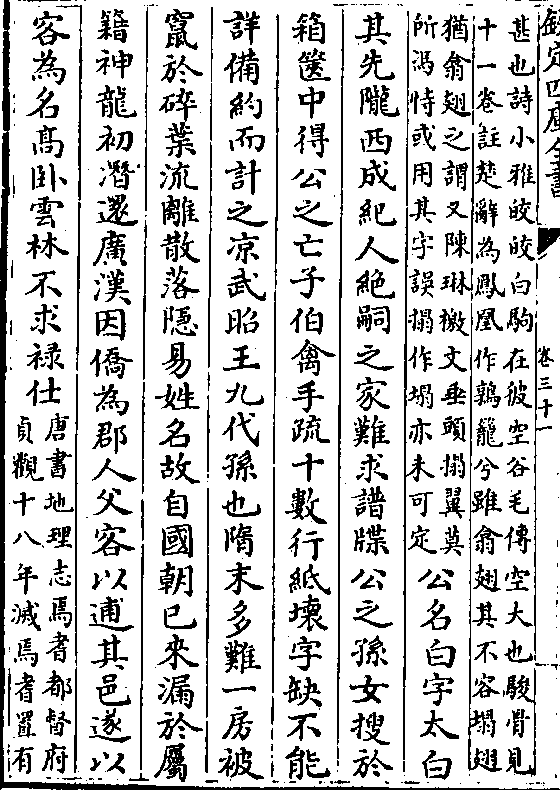 欽定四庫全書
卷三十一
甚也詩小雅皎皎白駒在彼空谷毛傳空大也駿骨見
十一卷註楚辭為鳳凰作鶉籠兮雖翕翅其不容塌翅
猶翕翅之謂又陳琳檄文垂頭搨翼莫
所馮恃或用其字誤搨作塌亦未可定
公名白字太白
其先隴西成紀人絶嗣之家難求譜牒公之孫女搜於
箱篋中得公之亡子伯禽手疏十數行紙壞字缺不能
詳備約而計之凉武昭王九代孫也隋末多難一房被
竄於碎葉流離散落隱易姓名故自國朝已來漏於屬
籍神龍初潛還廣漢因僑為郡人父客以逋其邑遂以
客為名高卧雲林不求禄仕
唐書地理志焉耆都督府
貞觀十八年滅焉耆置有